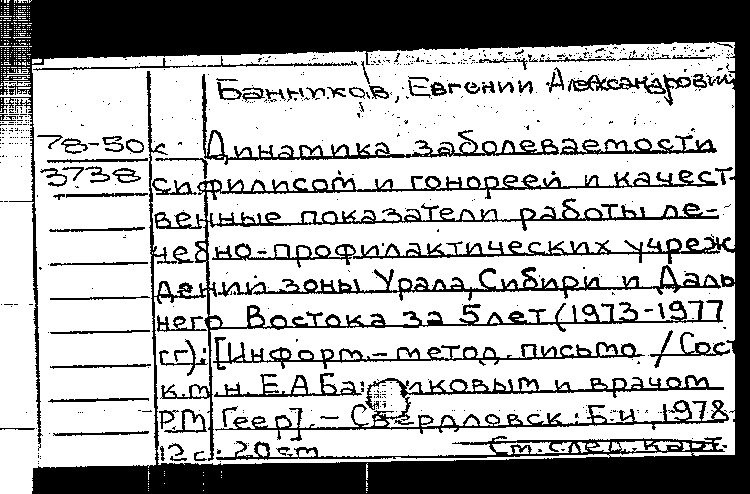 Банников, Евгений Александрович
78-50к Динамика заболеваемости
3738 сифилисом и гонореей и качест-
венные показатели работы ле-
чебно-профилактических учреж
дений зоны Урала, Сибири и Даль
него Востока за 5 лет (1973-1977
гг): [Информ.-метод. письмо / Сост
к.м.н. Е.А.Банниковым и врачом
Р.М. Геер]. - Свердловск: Б.и, 1978.
12 с.; 20 см Ст. след. карт.